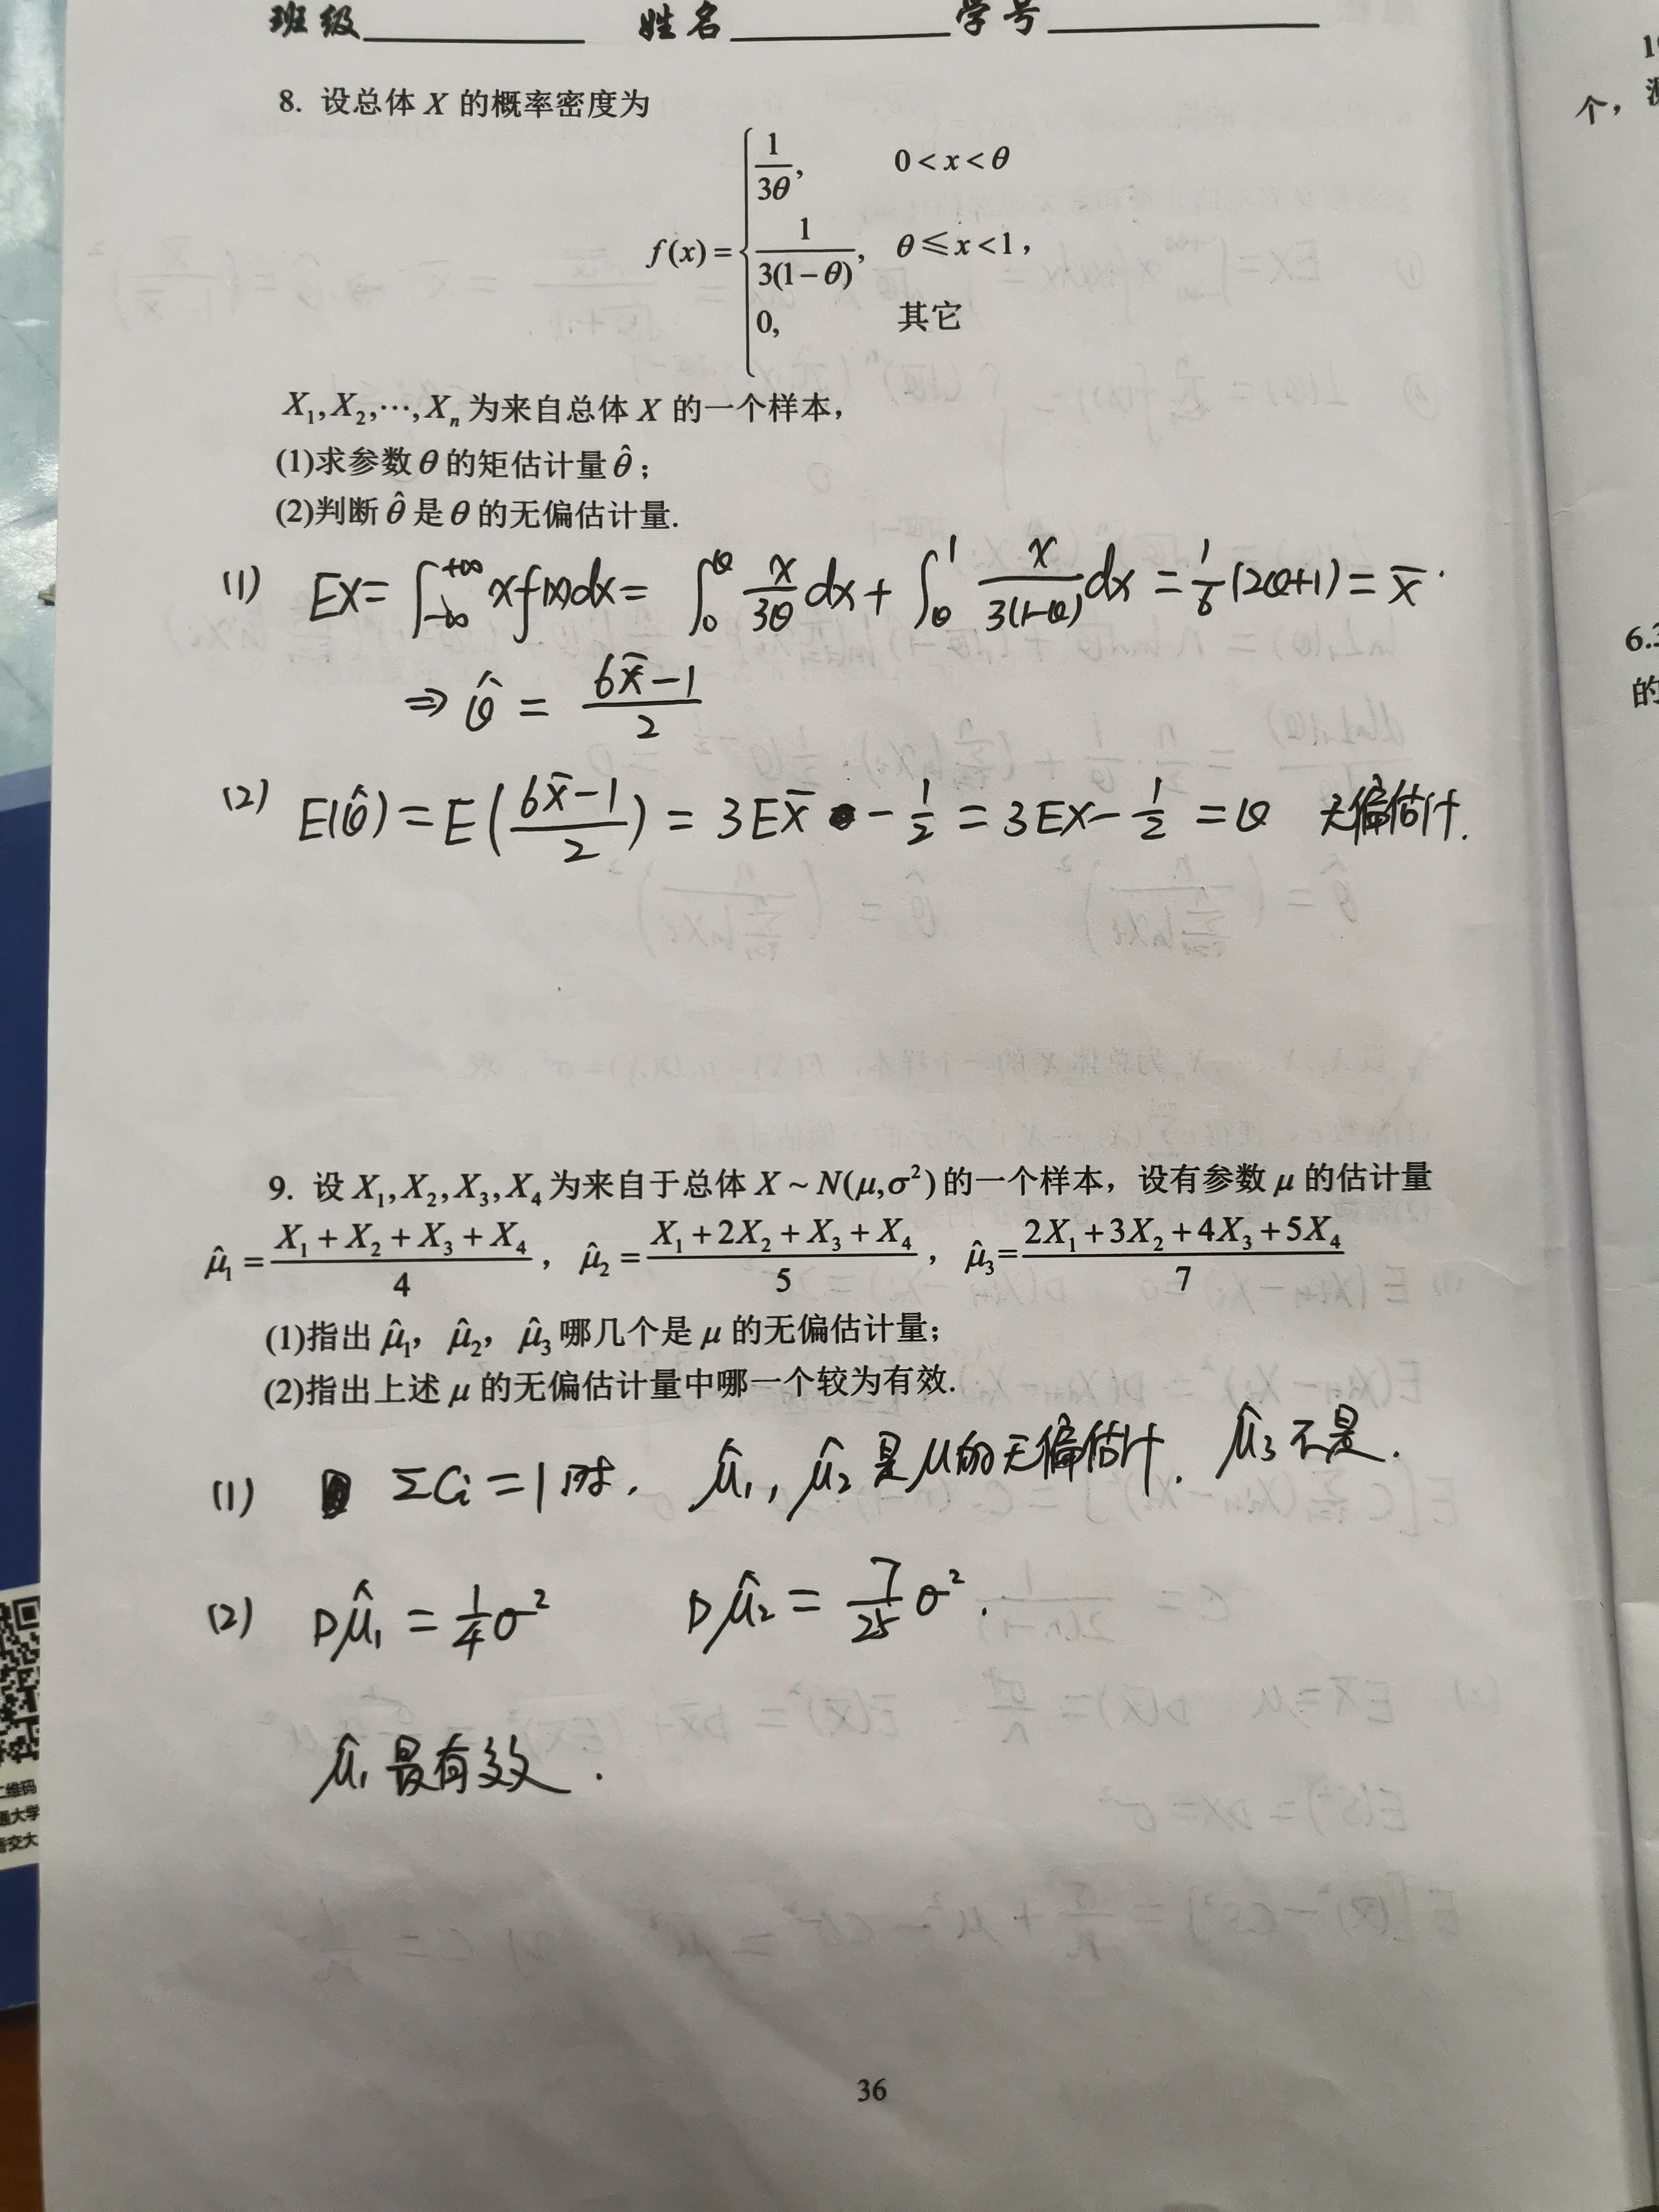 班级 姓名 学号
8. 设总体 X 的概率密度为
f(x) = { 1/(3θ), 0 < x < θ
1/(3(1-θ)), θ ≤ x < 1,
0, 其它
X₁, X₂, ⋯, Xₙ 为来自总体 X 的一个样本,
(1)求参数 θ 的矩估计量 θ̂;
(2)判断 θ̂ 是 θ 的无偏估计量.
(1) EX = ∫_{-∞}^{+∞} x f(x)dx = ∫_0^θ x/(3θ) dx + ∫_θ^1 x/(3(1-θ)) dx = 1/6 (2θ+1) = X̄.
⇒ θ̂ = (6X̄-1)/2
(2) E(θ̂) = E((6X̄-1)/2) = 3EX̄ - 1/2 = 3EX - 1/2 = θ 无偏估计.
9. 设 X₁, X₂, X₃, X₄ 为来自于总体 X ~ N(μ,σ²) 的一个样本, 设有参数 μ 的估计量
μ̂₁ = (X₁+X₂+X₃+X₄)/4, μ̂₂ = (X₁+2X₂+X₃+X₄)/5, μ̂₃ = (2X₁+3X₂+4X₃+5X₄)/7
(1)指出 μ̂₁, μ̂₂, μ̂₃ 哪几个是 μ 的无偏估计量;
(2)指出上述 μ 的无偏估计量中哪一个较为有效.
(1) ΣCi = 1 时, μ̂₁, μ̂₂ 是 μ 的无偏估计. μ̂₃ 不是.
(2) Dμ̂₁ = 1/4 σ² Dμ̂₂ = 7/25 σ².
μ̂₁ 最有效.
36
个,
6.3
的
二维码
通大学